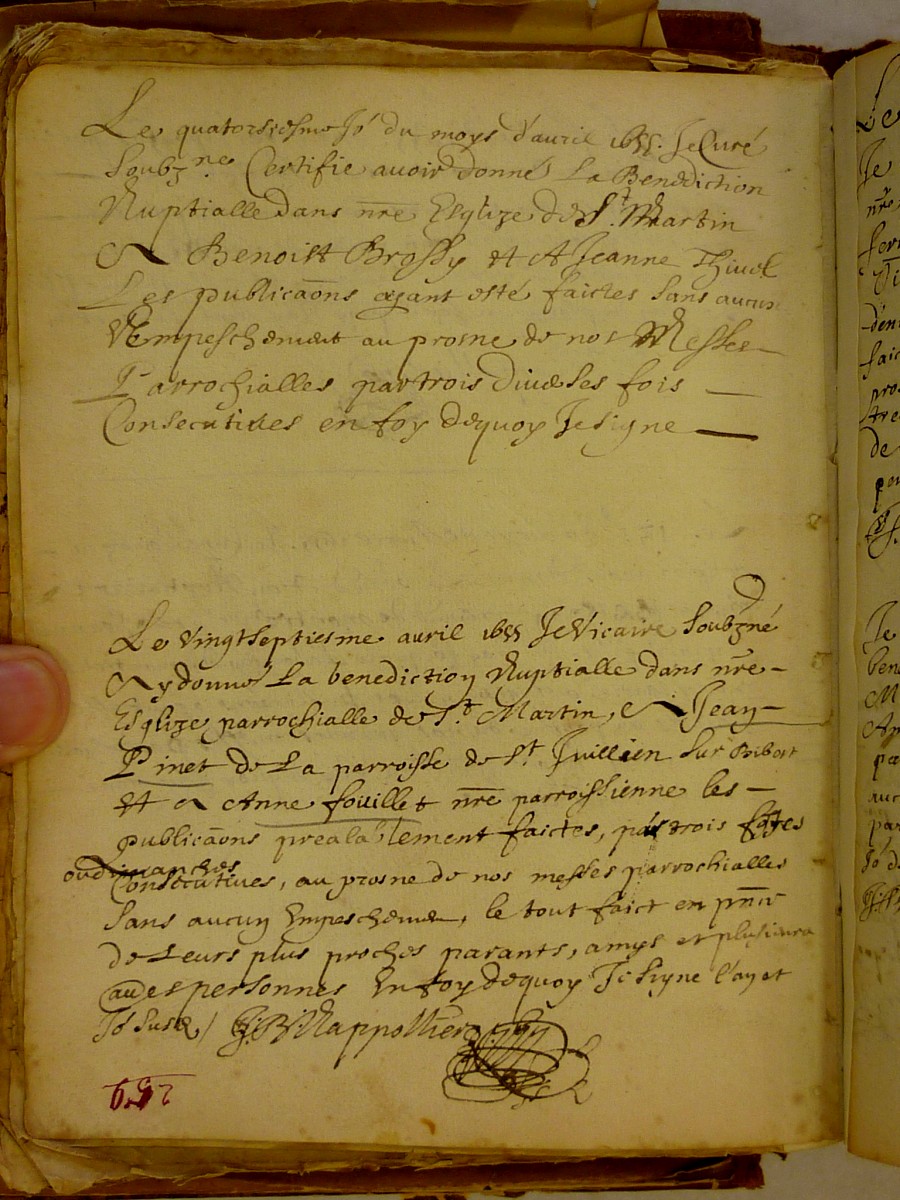 Le quatorsiesme Jo᷎ du moys d'auril 1655. Je Curé
Soubzne Certifie auoir donné La Benediction
Nuptialle dans nr̃e Esglize de St. Martin
A Benoist Brossy et A Jeanne Thiuel
Les publicaõns ayant esté faictes sans aucun
Empeschement au prosne de nos Messes
Parrochialles par trois diuerses fois
Consecutiues en foy dequoy Je signe
Le Vingtseptiesme auril 1655 Je Vicaire Soubzné
Ay donné La benediction Nuptialle dans nr̃e
Esglize parrochialle de St. Martin, A Jean
Pinet de La parroisse de St. Juillien sur Bibost
et A Anne fouillet nr̃e parroissienne les
publicaõns prealablement faictes, par trois festes
ou dimanches
Consecutiues, au prosne de nos messes parrochialles
Sans aucun Empescheme, le tout faict en pñce
de Leurs plus proches parants, amys et plusieurs
aūes personnes En foy dequoy Je signe l'an et
Jo susd /